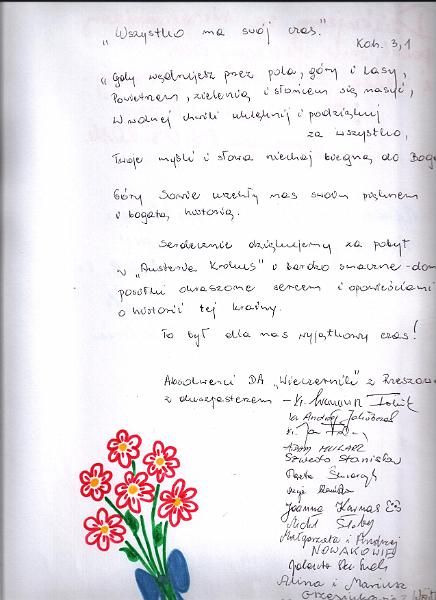 „Wszystko ma swój czas."
Koh. 3,1
„Gdy wędrujesz przez pola, góry i lasy,
Powietrzem, zielenią i słońcem się nasyć,
W wolnej chwili uklęknij i podziękuj
za wszystko,
Twoje myśli i słowa niechaj biegną do Boga
Góry Sowie urzekły nas swoim pięknem
i bogatą historią.
Serdecznie dziękujemy za pobyt
w „Austeria Krokus" i bardzo smaczne dom
posiłki okraszone sercem i opowieściami
o historii tej krainy.
To był dla nas wyjątkowy czas!
Absolwenci DA „Wieczernik" z Rzeszowa
z duszpasterzem – ks.
ks. Andrzej
ks. Jan
ADAM MULARZ
Szwedo Stanisław
Joanna Karnas
Małgorzata i Andrzej
NOWAKOWIE
Jolanta
Alina i Mariusz